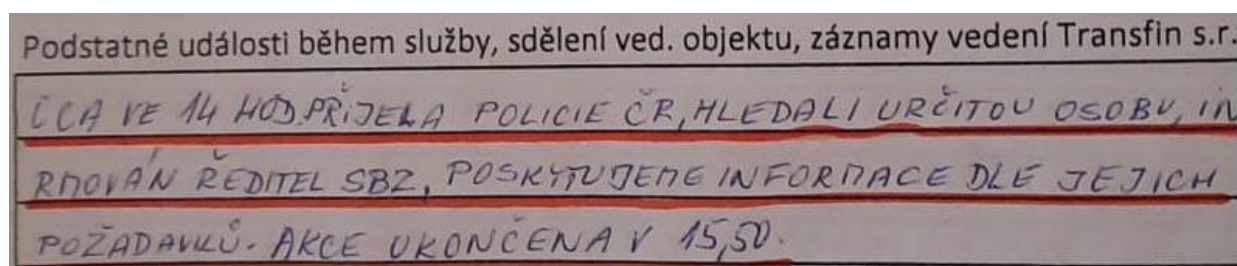 Podstatné události během služby, sdělení ved. objektu, záznamy vedení Transfin s.r.
CCA VE 14 HOD. PŘIJELA POLICIE ČR, HLEDALI URČITOU OSOBU, IN
RMOVÁN ŘEDITEL SBZ, POSKYTUJEME INFORMACE DLE JEJICH
POŽADAVKŮ. AKCE UKONČENA V 15,50.